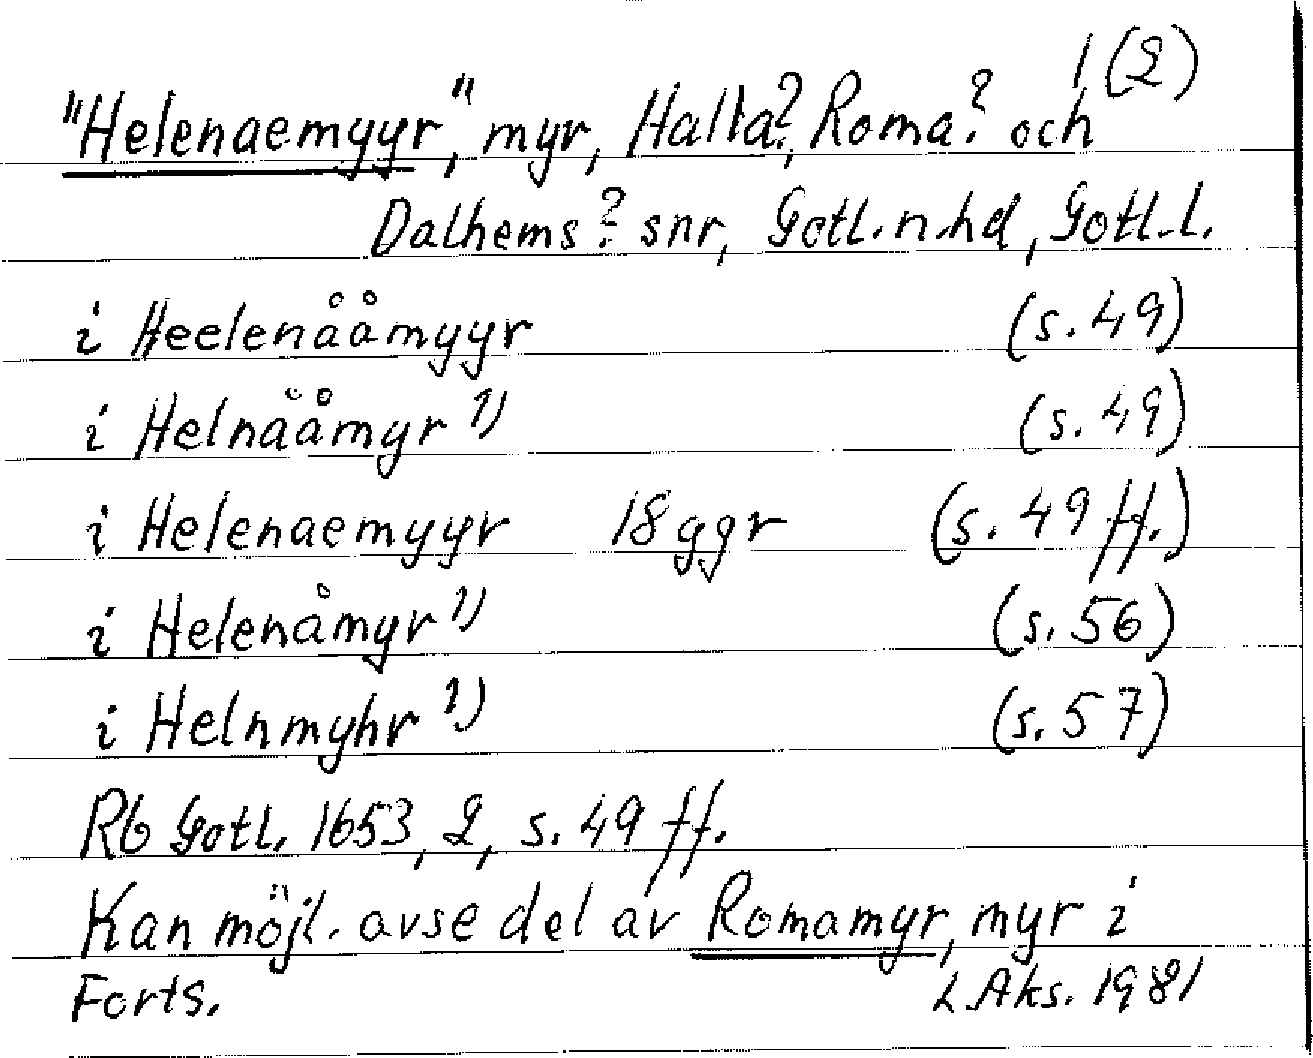 1(2)
"Helenaemyyr", myr, Halla?, Roma? och
Dalhems? snr, Gotl. n. hd, Gotl. l.
i Heelenååmyyr (s. 49)
i Helnååmyr 1) (s. 49)
i Helenaemyyr 18 ggr (s. 49 ff.)
i Helenåmyr 1) (s. 56)
i Helnmyhr 1) (s. 57)
Rb Gotl. 1653, 2, s. 49 ff.
Kan möjl. avse del av Romamyr, myr i
Forts. L Aks. 1981